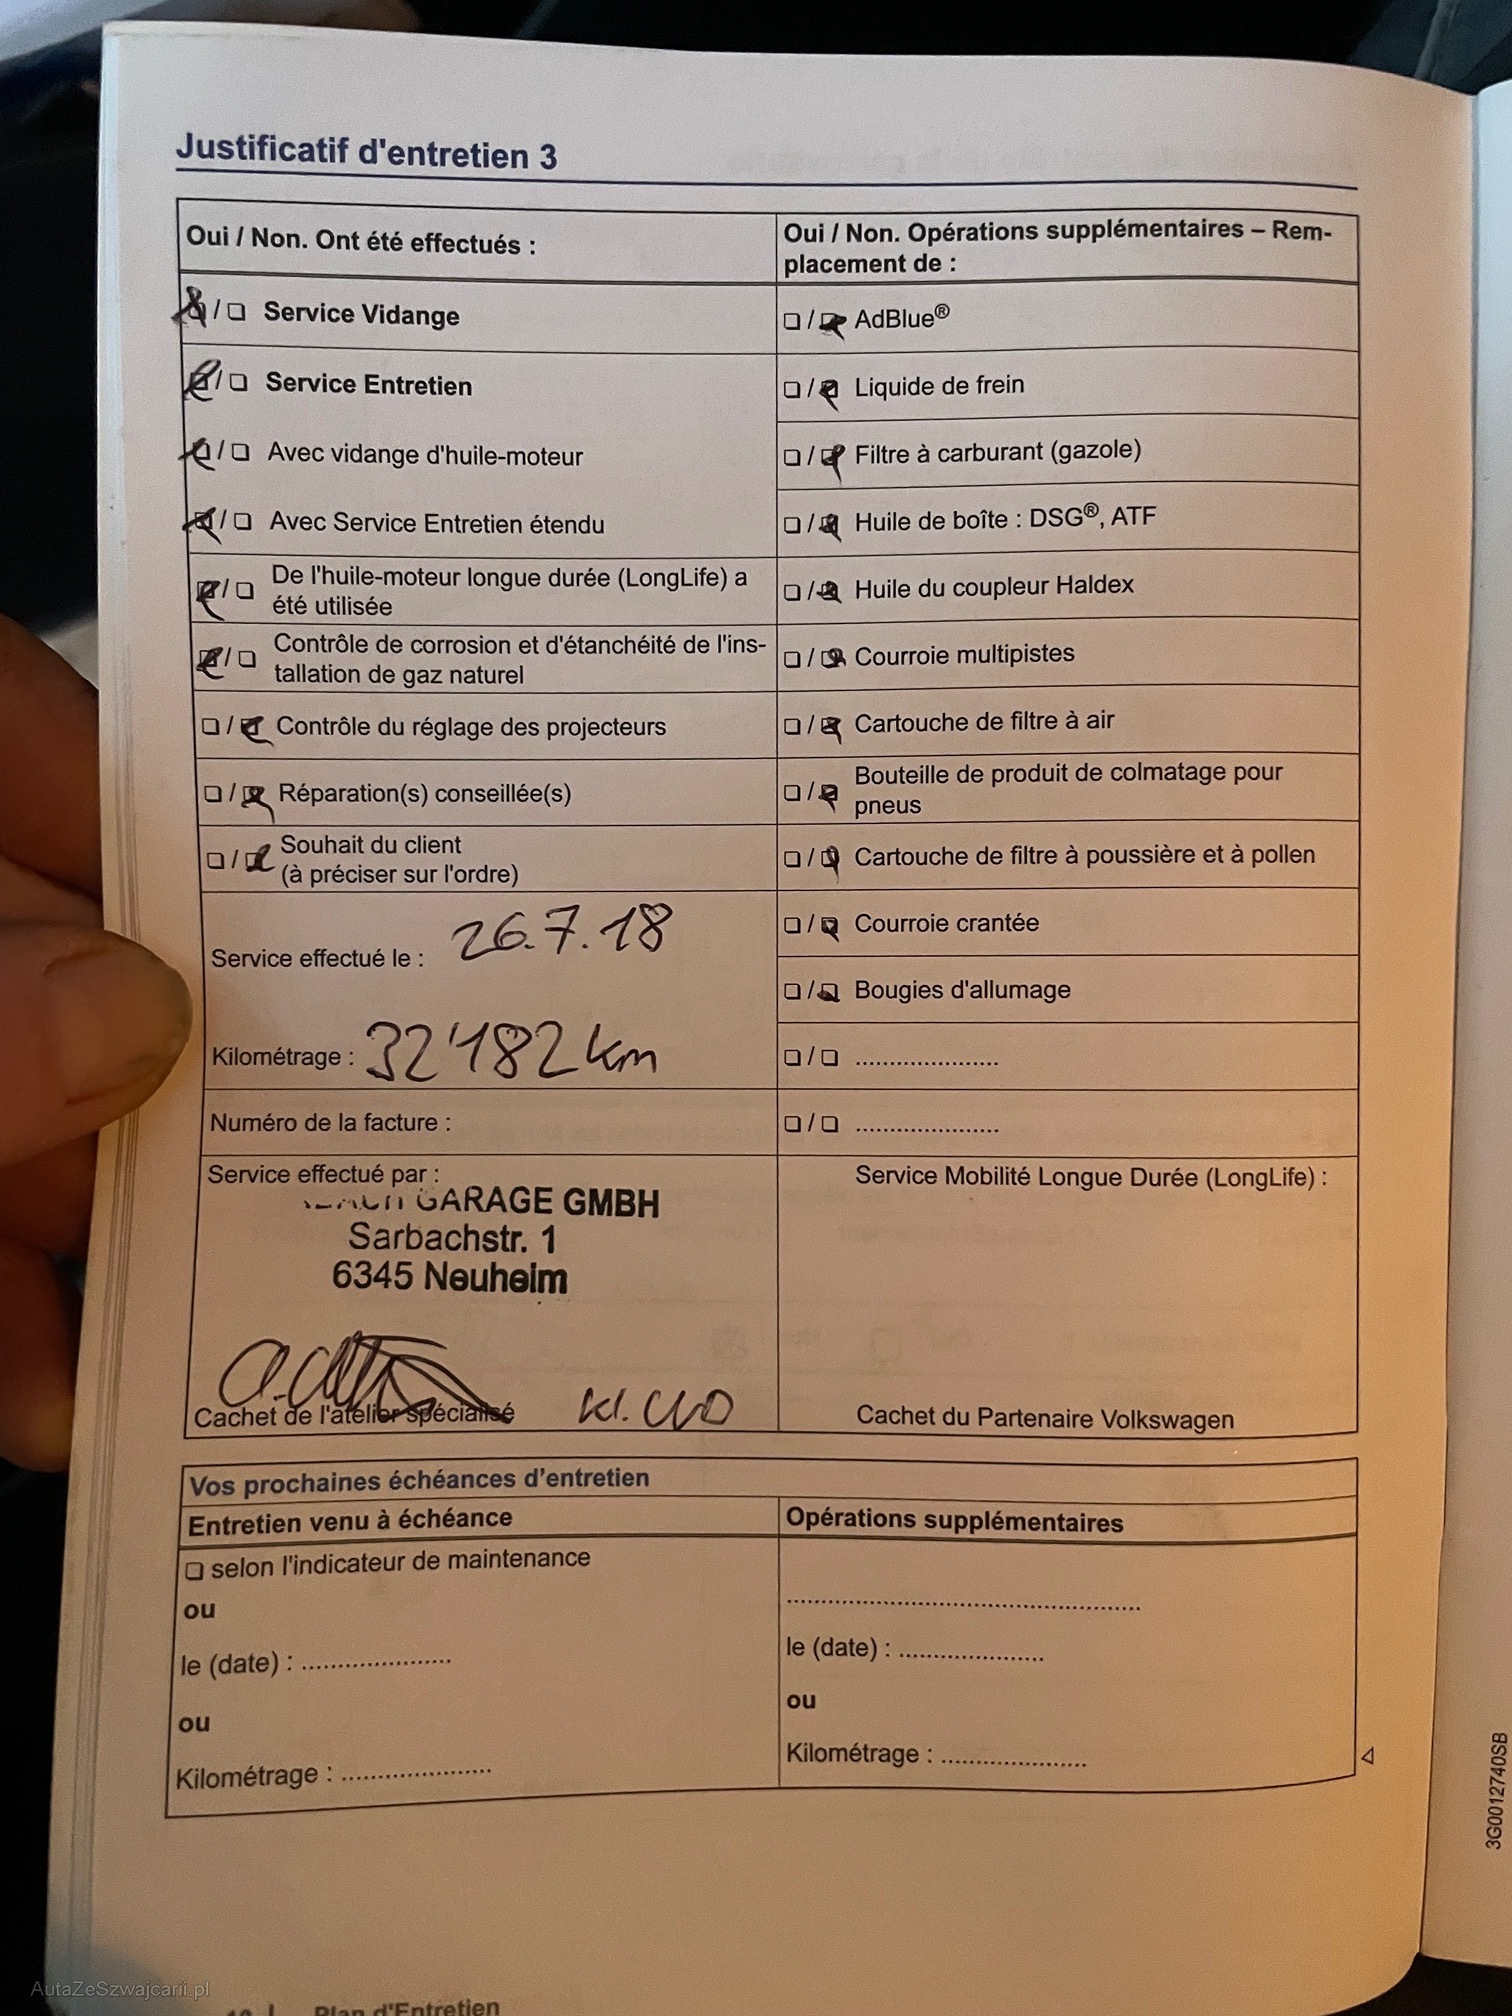 Justificatif d'entretien 3
Oui / Non. Ont été effectués :
☒/❏ Service Vidange
☒/❏ Service Entretien
☒/❏ Avec vidange d'huile-moteur
☒/❏ Avec Service Entretien étendu
☒/❏ De l'huile-moteur longue durée (LongLife) a
été utilisée
☒/❏ Contrôle de corrosion et d'étanchéité de l'ins-
tallation de gaz naturel
❏/☒ Contrôle du réglage des projecteurs
❏/☒ Réparation(s) conseillée(s)
❏/☒ Souhait du client
(à préciser sur l'ordre)
Service effectué le : 26.7.18
Kilométrage : 32'182 km
Numéro de la facture :
Service effectué par :
GARAGE GMBH
Sarbachstr. 1
6345 Neuheim
Cachet de l'atelier spécialisé
Oui / Non. Opérations supplémentaires – Rem-
placement de :
❏/☒ AdBlue®
❏/☒ Liquide de frein
❏/☒ Filtre à carburant (gazole)
❏/☒ Huile de boîte : DSG®, ATF
❏/☒ Huile du coupleur Haldex
❏/☒ Courroie multipistes
❏/☒ Cartouche de filtre à air
❏/☒ Bouteille de produit de colmatage pour
pneus
❏/☒ Cartouche de filtre à poussière et à pollen
❏/☒ Courroie crantée
❏/☒ Bougies d'allumage
❏/❏ .....................
❏/❏ .....................
Service Mobilité Longue Durée (LongLife) :
Cachet du Partenaire Volkswagen
Vos prochaines échéances d'entretien
Entretien venu à échéance
❏ selon l'indicateur de maintenance
ou
le (date) : ......................
ou
Kilométrage : ......................
Opérations supplémentaires
.....................................................
le (date) : ......................
ou
Kilométrage : ......................
3G0012740SB
Plan d'Entretien
AutaZeSzwajcarii.pl